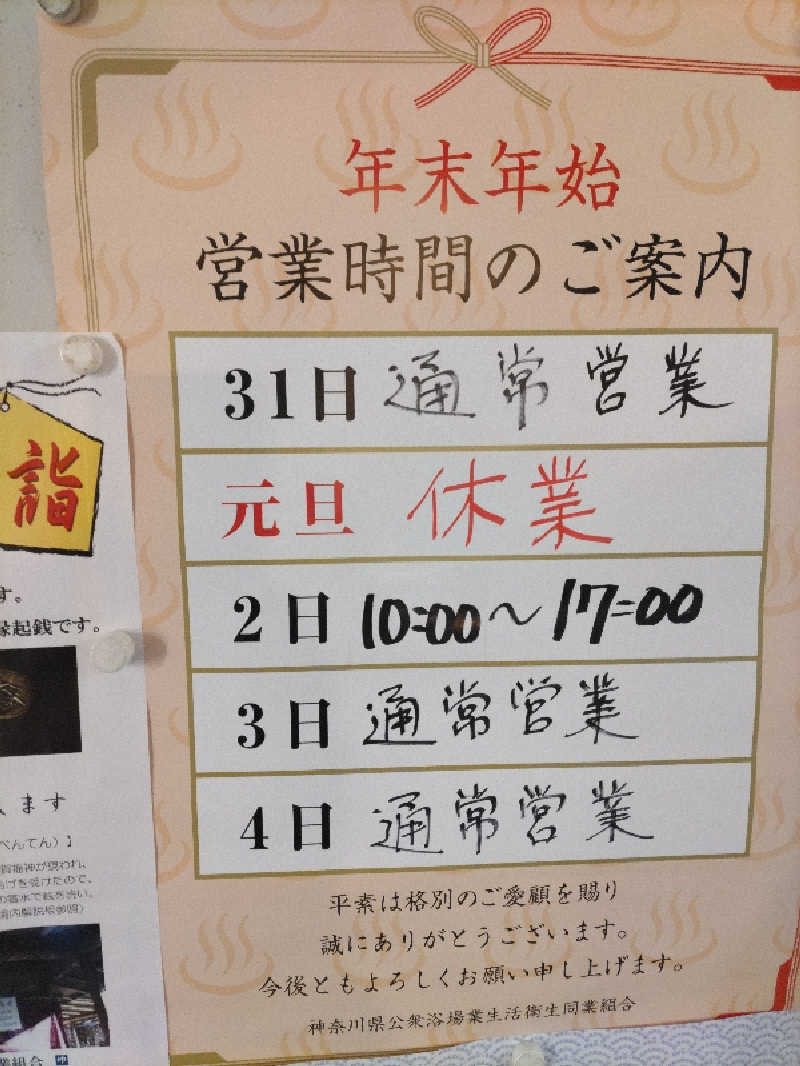 年末年始
営業時間のご案内
31日 通常営業
元旦 休業
2日 10:00～17:00
3日 通常営業
4日 通常営業
平素は格別のご愛顧を賜り
誠にありがとうございます。
今後ともよろしくお願い申し上げます。
神奈川県公衆浴場業生活衛生同業組合
詣
す。
縁起銭です。
ます
べんてん）】